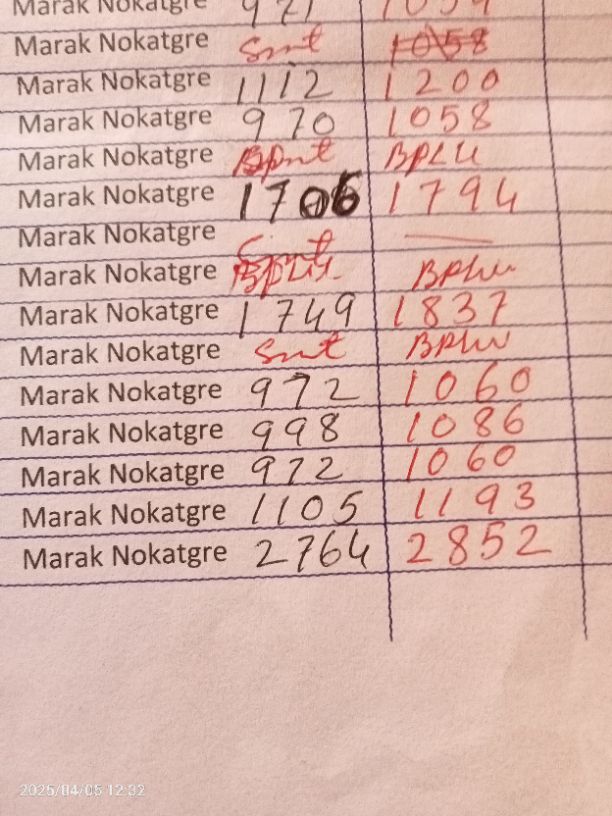 Marak Nokatgre 971 1059
Marak Nokatgre Smt 1058
Marak Nokatgre 1112 1200
Marak Nokatgre 970 1058
Marak Nokatgre
Marak Nokatgre 1706 1794
Marak Nokatgre Smt
Marak Nokatgre
Marak Nokatgre 1749 1837
Marak Nokatgre Smt
Marak Nokatgre 972 1060
Marak Nokatgre 998 1086
Marak Nokatgre 972 1060
Marak Nokatgre 1105 1193
Marak Nokatgre 2764 2852
2025/04/05 12:32